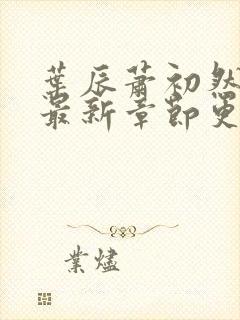 葉辰蕭初然
最新章節更
業燼